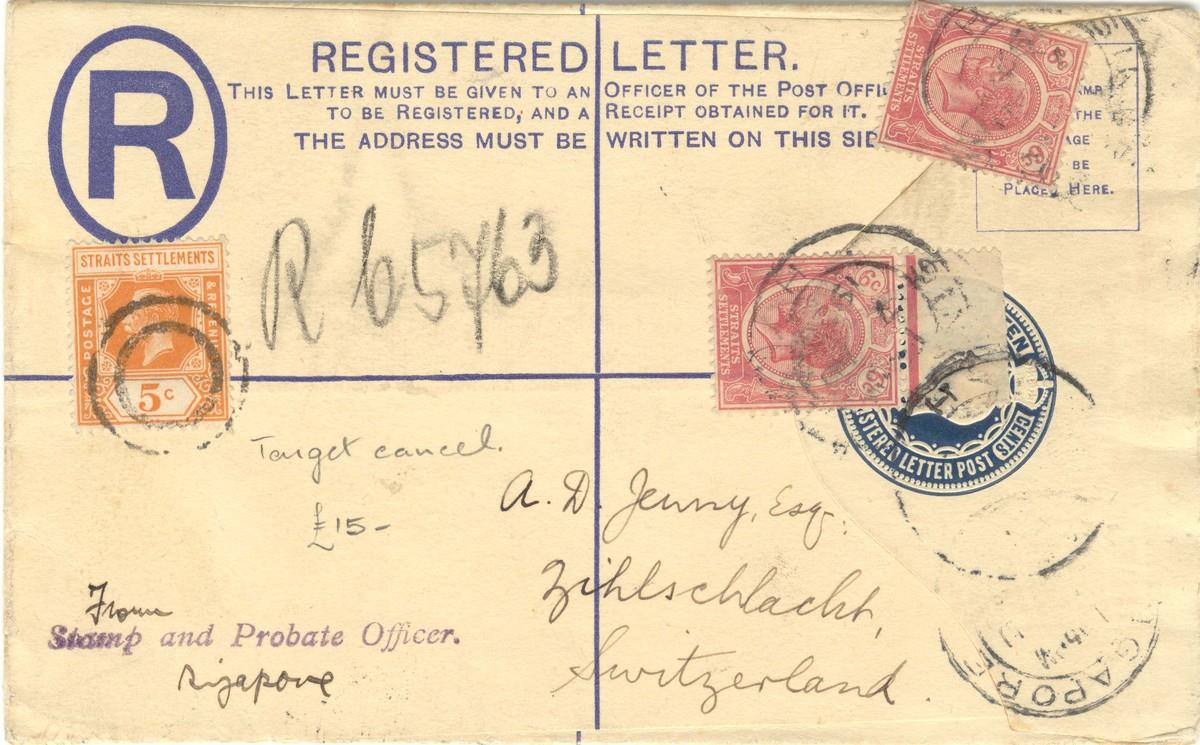 R
REGISTERED LETTER.
THIS LETTER MUST BE GIVEN TO AN OFFICER OF THE POST OFFI
TO BE REGISTERED, AND A RECEIPT OBTAINED FOR IT.
THE ADDRESS MUST BE WRITTEN ON THIS SID
THE
AGE
BE
PLACED HERE.
STRAITS SETTLEMENTS
6c
6c
R 65763
STRAITS SETTLEMENTS
POSTAGE
5c
STRAITS SETTLEMENTS
6c
6c
STERED LETTER POST
CENTS
Target cancel.
£15-
A. D. Jenny, Esq.
Zihlschlacht,
Switzerland.
From
Stamp and Probate Officer.
Singapore
GAPOR